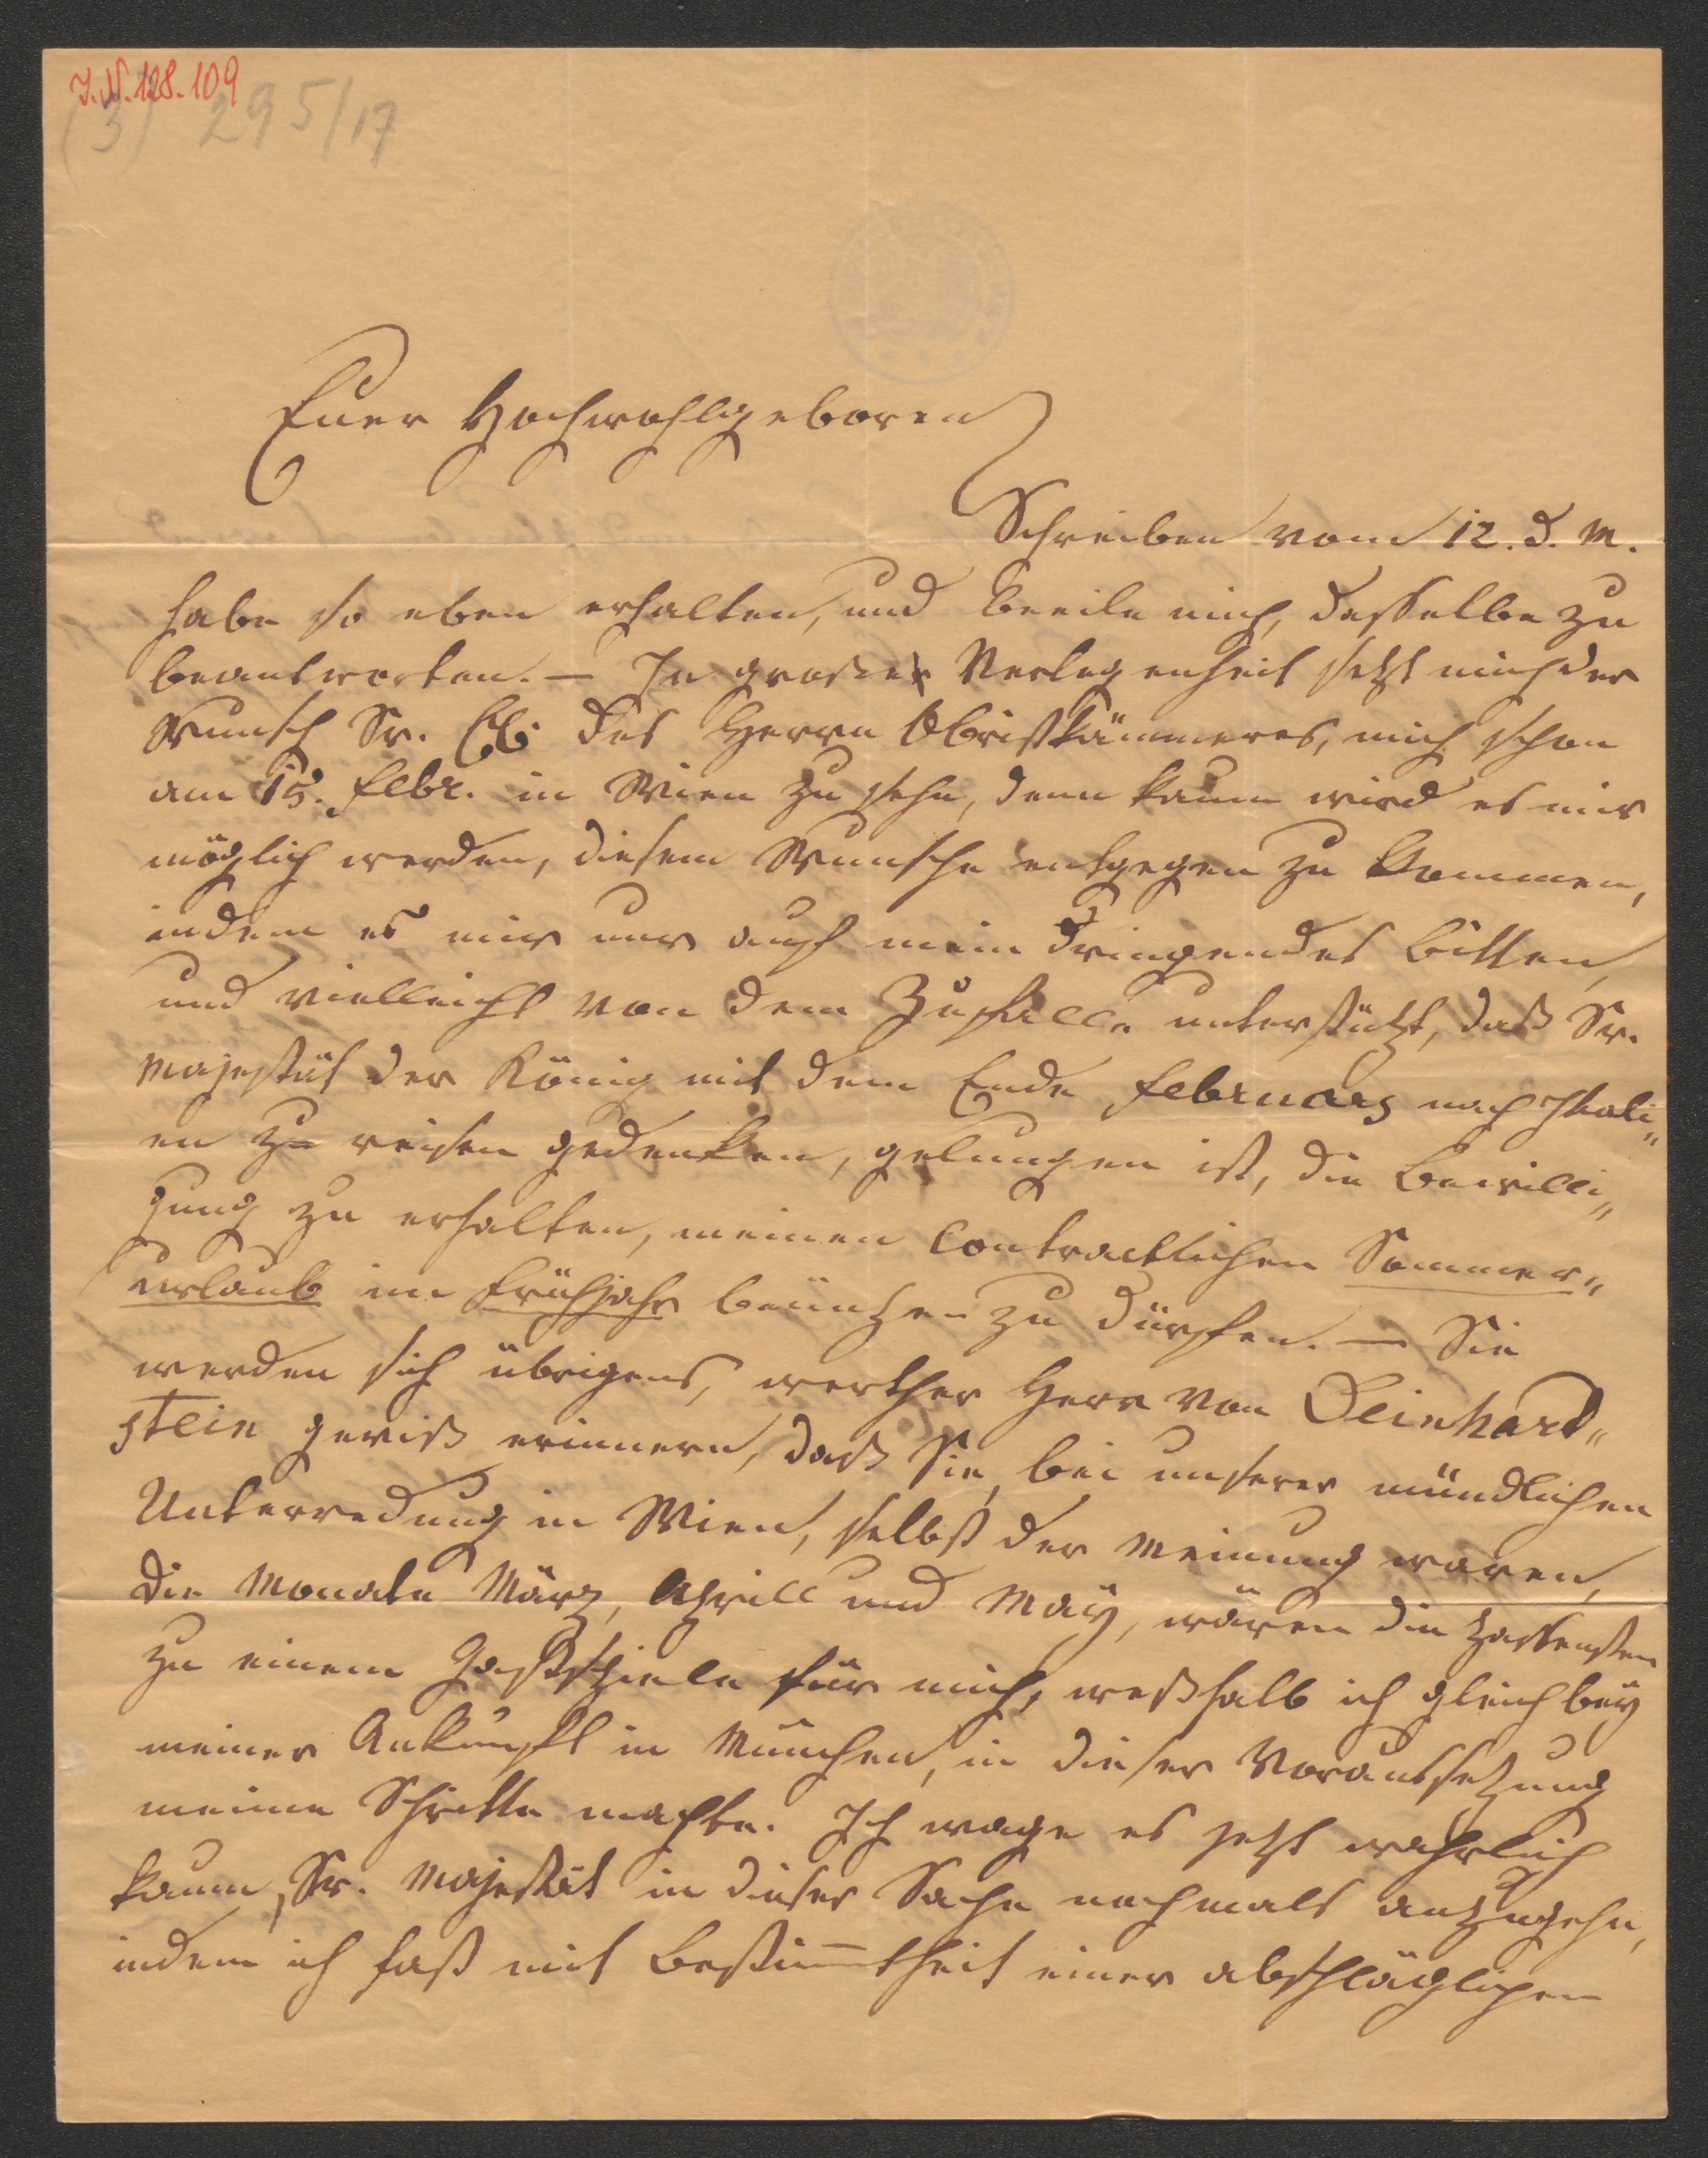 I.N. 128.109
(3) 295/17
Euer Hochwohlgeboren
Schreiben vom 12. d. M.
habe so eben erhalten, und beeile mich, dasselbe zu
beantworten. — In große Verlegenheit setzt mich der
Wunsch Sr. des Herrn Obristkämmeres, mich schon
am 15. Febr. in Wien zu sehn, denn kaum wird es mir
möglich werden, diesem Wunsche entgegen zu kommen,
indem es mir nur auf mein dringendes Bitten,
und vielleicht von dem Zufalle unterstützt, daß Sr.
Majestät der König mit dem Ende Februars nach Itali„
en zu reisen gedenken, gelungen ist, die Bewilli„
gung zu erhalten, meinen contractlichen Sommer„
urlaub im Frühjahr benützen zu dürfen. — Sie
werden sich übrigens, werther Herr von Deinhard„
stein gewiß erinnern, daß Sie, bei unserer mündlichen
Unterredung in Wien, selbst der Meinung waren,
die Monate März, Aprill und May, wären die passensten
zu einem Gastspiele für mich, weßhalb ich gleich bey
meiner Ankunft in München, in dieser Voraussetzung
meine Schritte machte. Ich wage es jetzt wahrlich
kaum, Sr. Majestät in dieser Sache nochmals anzugehn,
indem ich fast mit Bestim̅theit einer abschläglichen